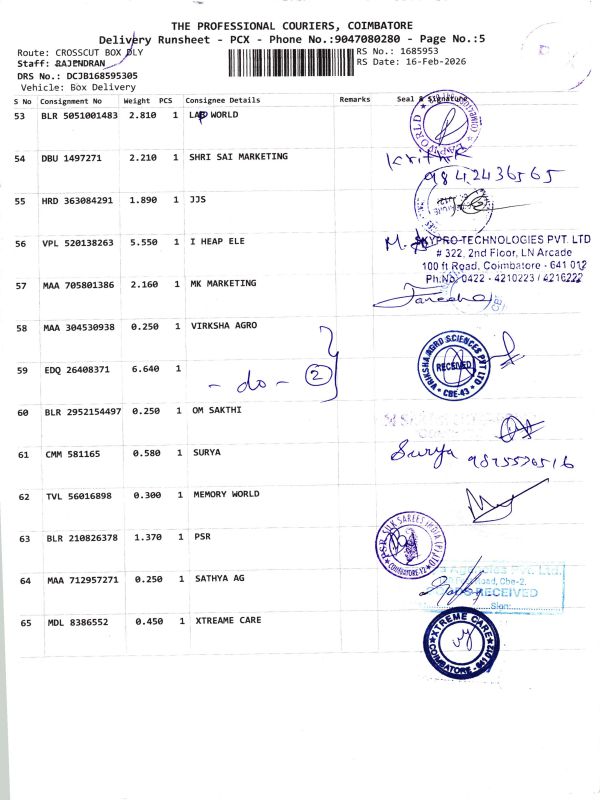 THE PROFESSIONAL COURIERS, COIMBATORE
Delivery Runsheet - PCX - Phone No.:9047080280 - Page No.:5
Route: CROSSCUT BOX DLY
Staff: RAJENDRAN
DRS No.: DCJB168595305
Vehicle: Box Delivery
RS No.: 1685953
RS Date: 16-Feb-2026
S No Consignment No Weight PCS Consignee Details Remarks Seal & Signature
53 BLR 5051001483 2.810 1 LAB WORLD
54 DBU 1497271 2.210 1 SHRI SAI MARKETING
9842436565
55 HRD 363084291 1.890 1 JJS
56 VPL 520138263 5.550 1 I HEAP ELE
SKYPRO TECHNOLOGIES PVT. LTD
# 322, 2nd Floor, LN Arcade
100 ft Road, Coimbatore - 641 012
Ph.No: 0422 - 4210223 / 4216222
57 MAA 705801386 2.160 1 MK MARKETING
58 MAA 304530938 0.250 1 VIRKSHA AGRO
VIRIKSHA AGRO SCIENCES PVT LTD
RECEIVED
CBE-43
59 EDQ 26408371 6.640 1
- do - 2
60 BLR 2952154497 0.250 1 OM SAKTHI
61 CMM 581165 0.580 1 SURYA
Surya
62 TVL 56016898 0.300 1 MEMORY WORLD
63 BLR 210826378 1.370 1 PSR
PSR SILK SAREES INDIA (P) LTD
COIMBATORE-12
64 MAA 712957271 0.250 1 SATHYA AG
Agencies Pvt. Ltd.
Road, Cbe-2.
RECEIVED
Sign:
65 MDL 8386552 0.450 1 XTREAME CARE
XTREME CARE
COIMBATORE - 641 012